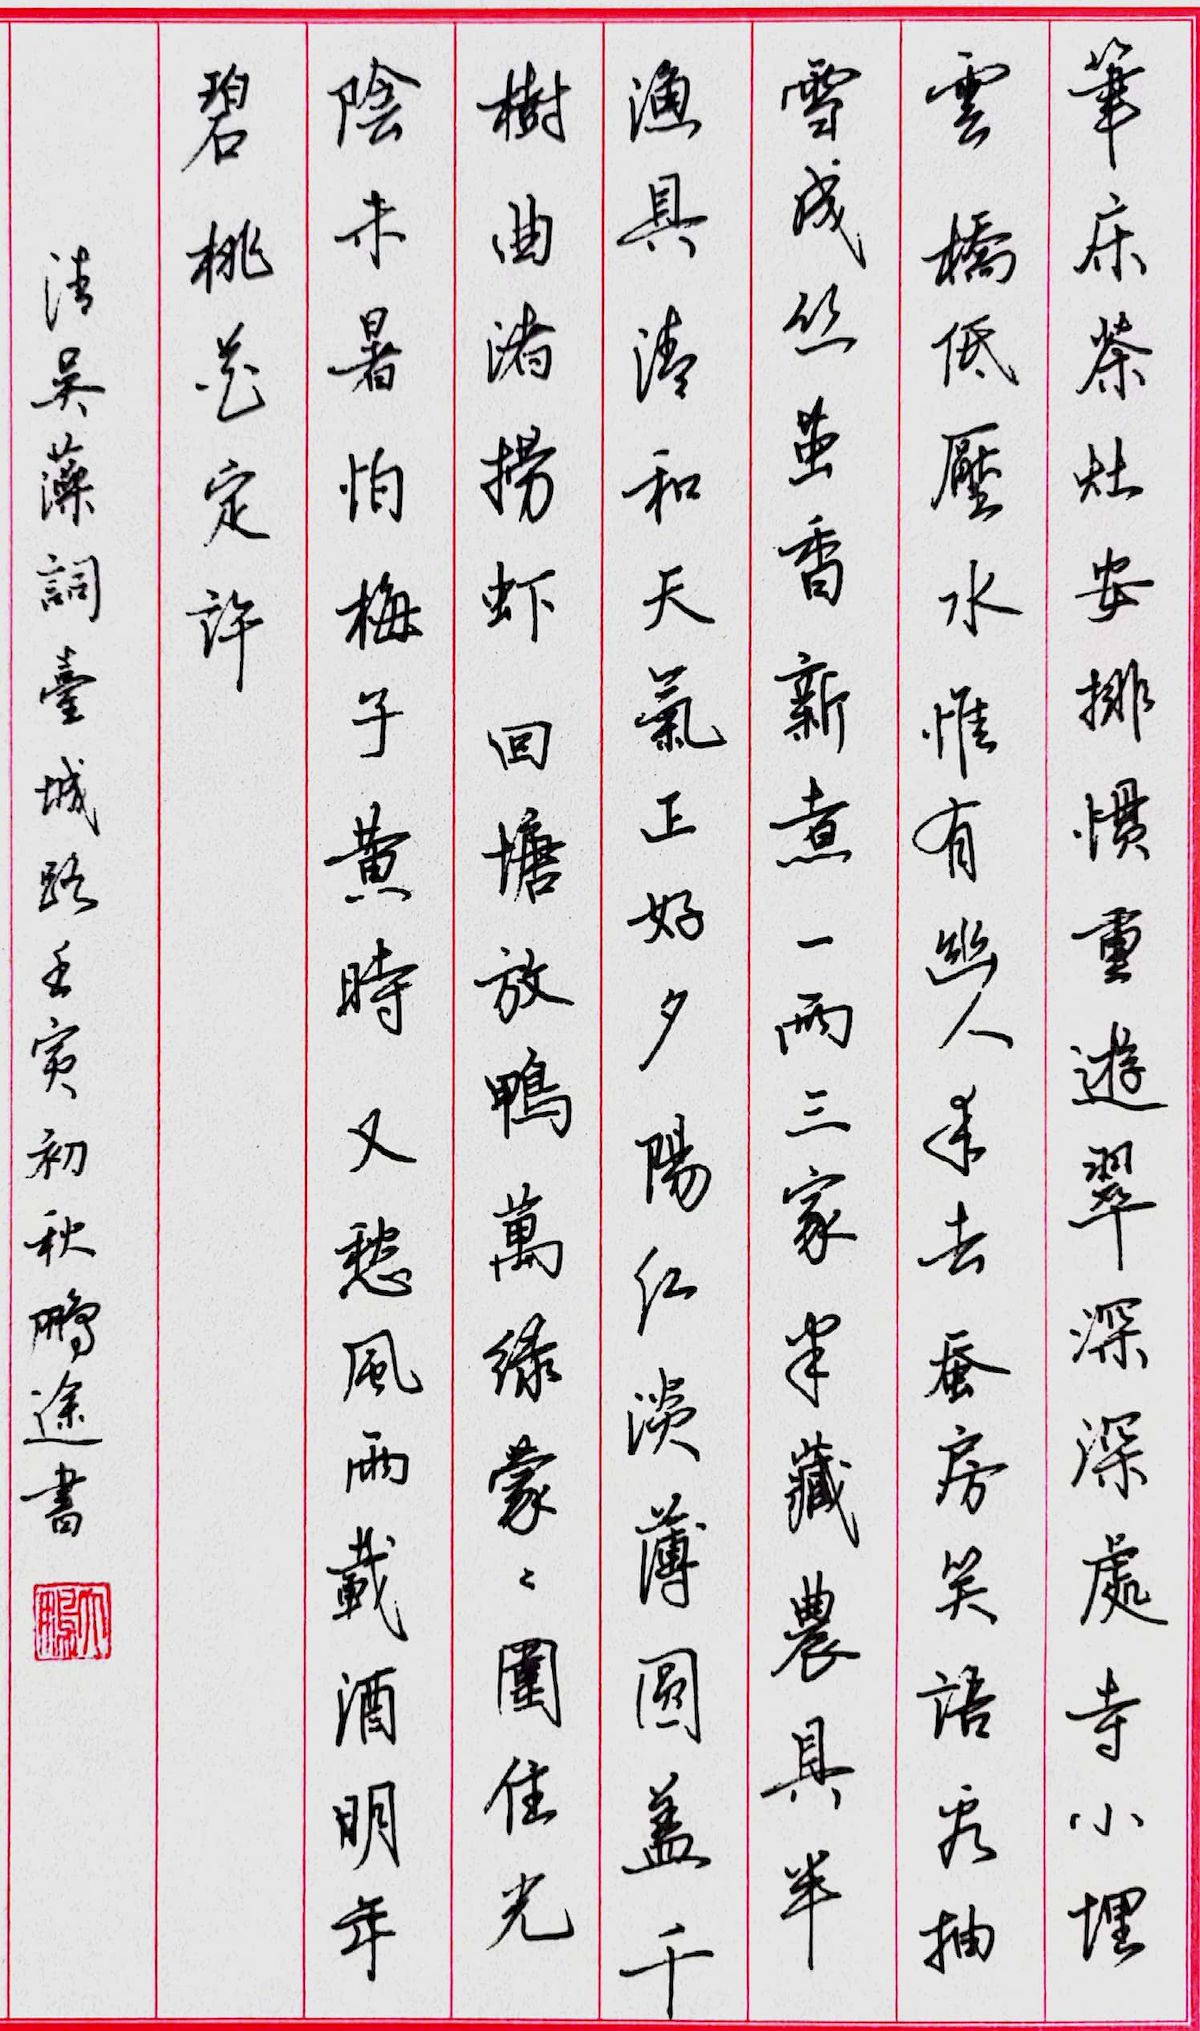 筆床茶灶安排慣重遊翠深深處寺小埋
雲橋低壓水惟有幽人来去蚕房笑語看抽
雪成丝茧香新煮一兩三家半藏農具半
漁具清和天氣正好夕陽红淡薄圓盖千
樹曲渚撈虾回塘放鴨萬绿蒙〻圍住光
陰未暑怕梅子黄時又愁風雨載酒明年
碧桃花定許
清吴藻詞臺城路壬寅初秋鹏途書